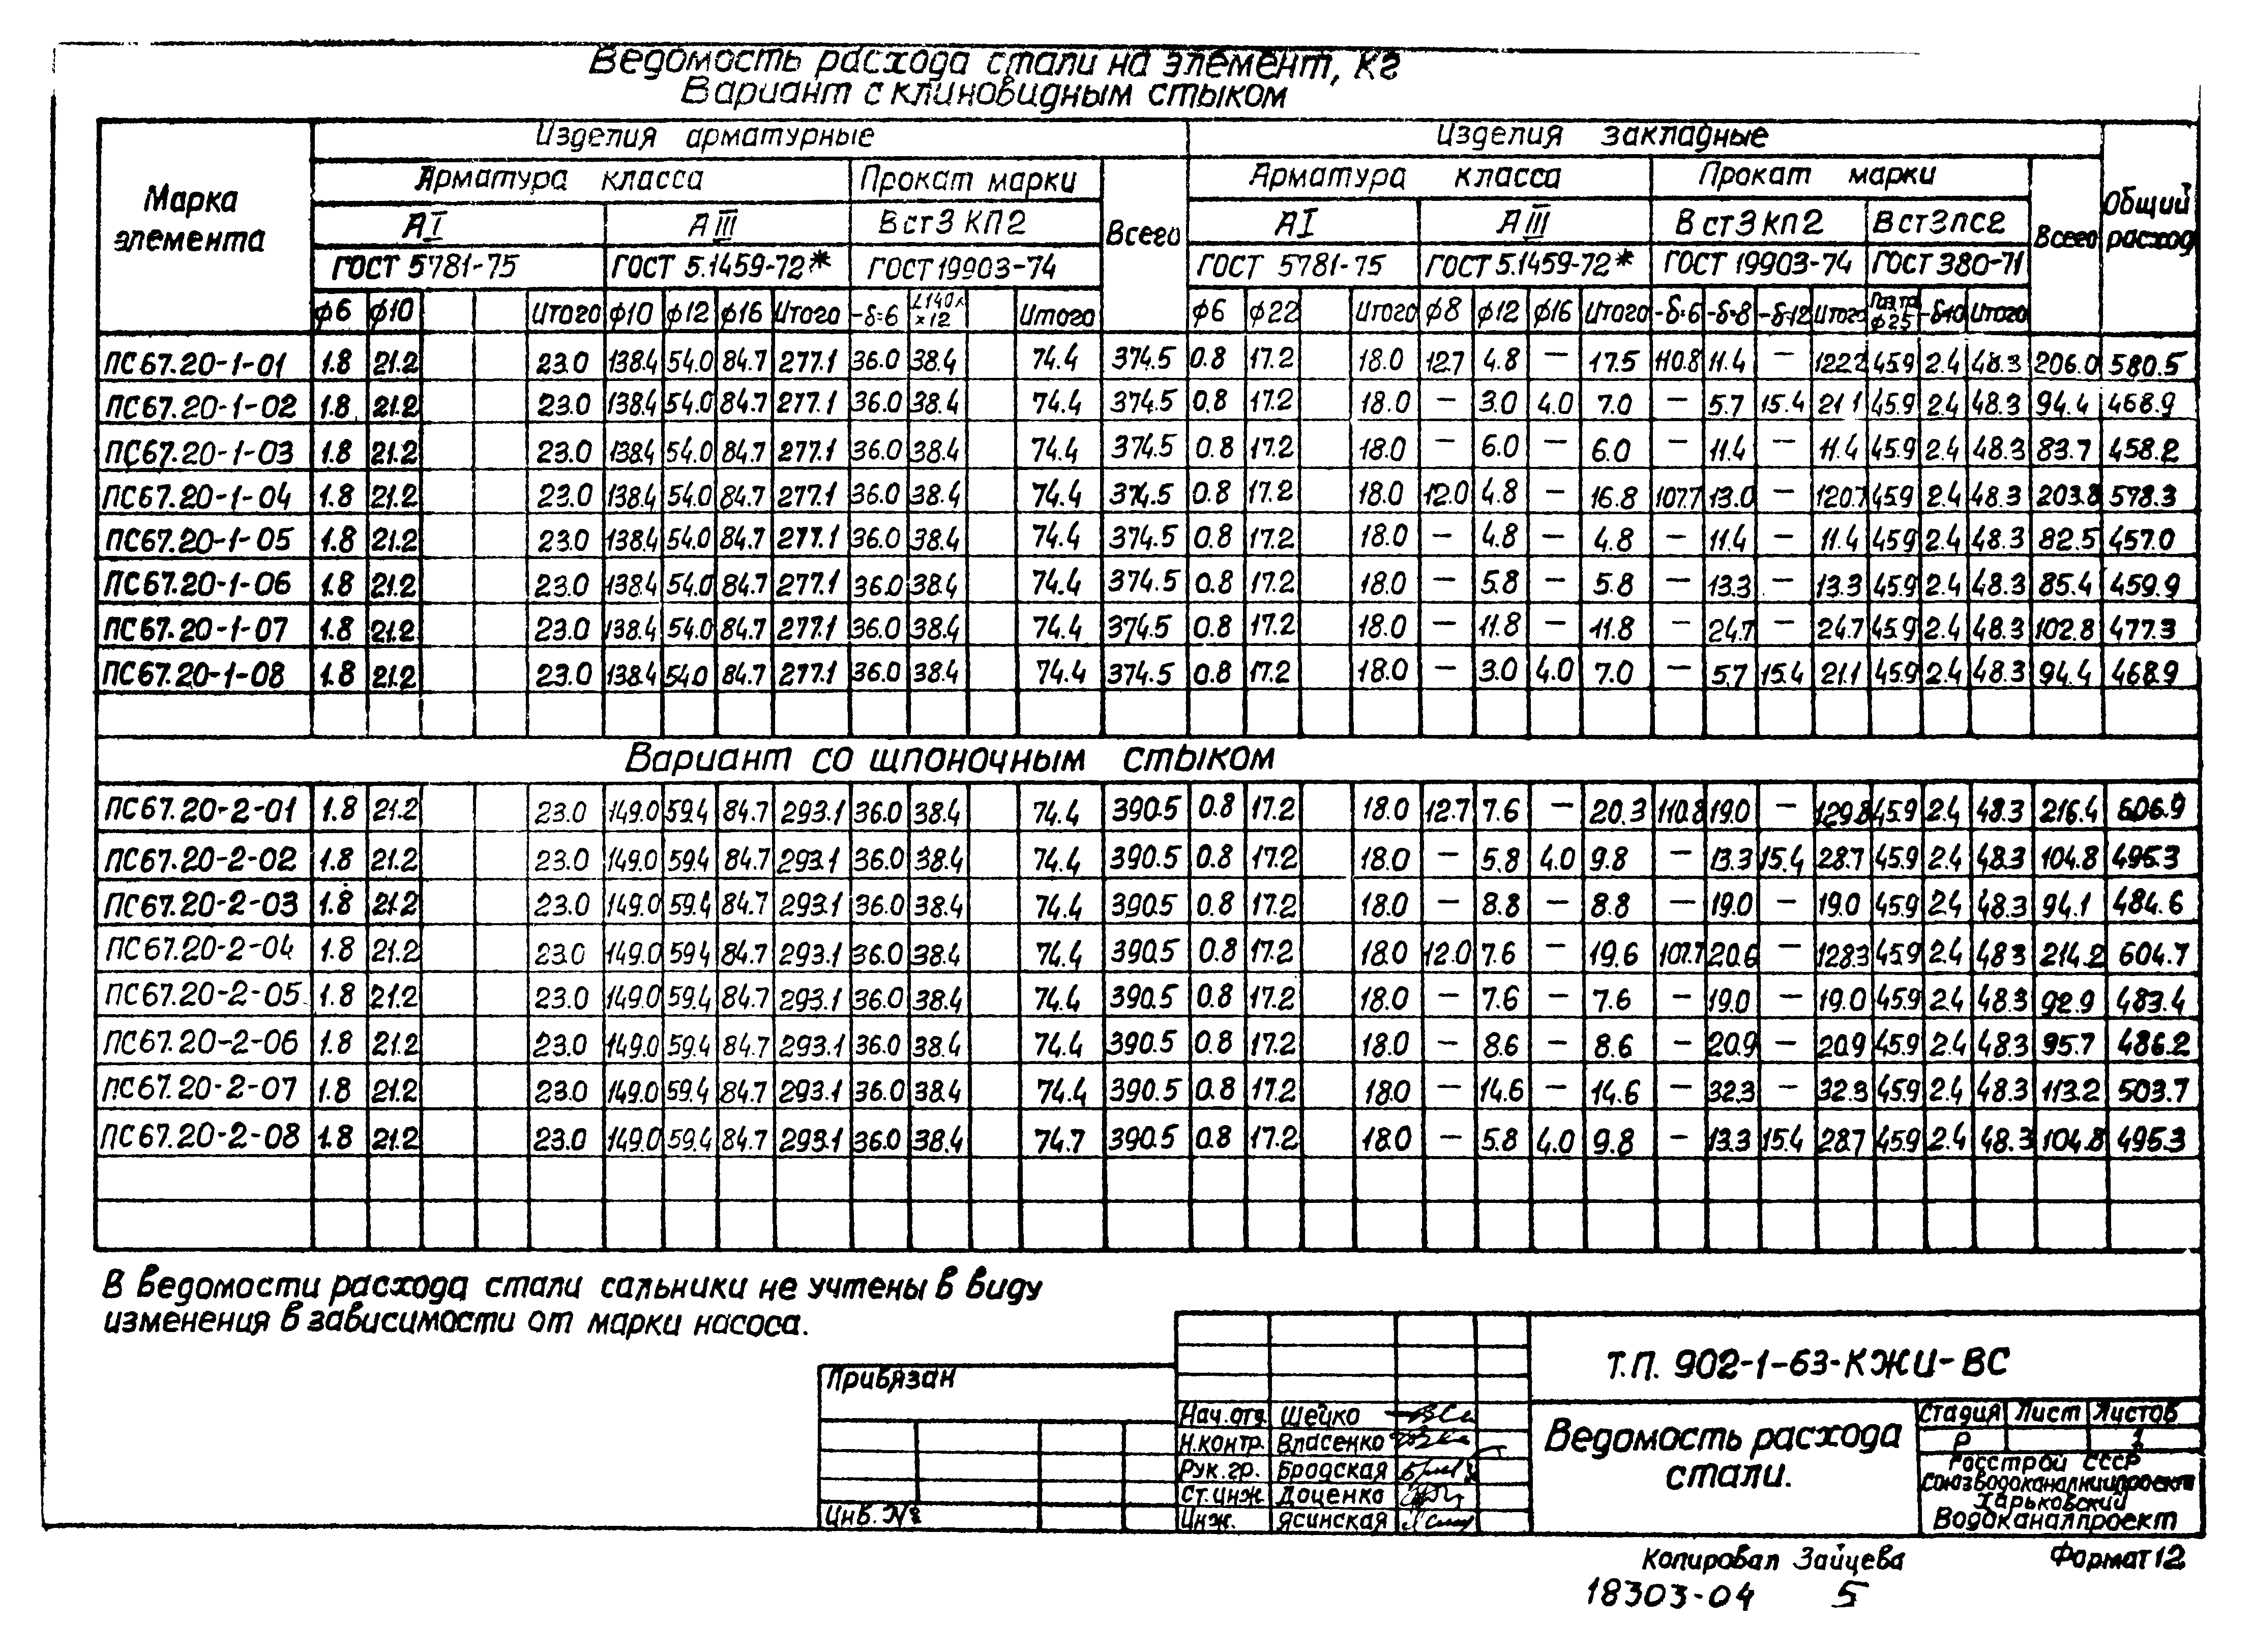 Ведомость расхода стали на элемент, кг
Вариант с клиновидным стыком
Марка элемента
Изделия арматурные
Изделия закладные
Общий расход
Арматура класса
Прокат марки
Всего
Арматура класса
Прокат марки
Всего
АI
АIII
Вст3кп2
АI
АIII
Вст3кп2
Вст3пс2
ГОСТ 5781-75
ГОСТ 5.1459-72*
ГОСТ 19903-74
ГОСТ 5781-75
ГОСТ 5.1459-72*
ГОСТ 19903-74
ГОСТ 380-71
ф6 ф10 Итого ф10 ф12 ф16 Итого -δ=6 L140××12 Итого ф6 ф22 Итого ф8 ф12 ф16 Итого -δ=6 -δ=8 -δ=12 Итого ф25 -δ10 Итого
ПС67.20-1-01 1.8 21.2 23.0 138.4 54.0 84.7 277.1 36.0 38.4 74.4 374.5 0.8 17.2 18.0 12.7 4.8 — 17.5 110.8 11.4 — 122.2 45.9 2.4 48.3 206.0 580.5
ПС67.20-1-02 1.8 21.2 23.0 138.4 54.0 84.7 277.1 36.0 38.4 74.4 374.5 0.8 17.2 18.0 — 3.0 4.0 7.0 — 5.7 15.4 21.1 45.9 2.4 48.3 94.4 468.9
ПС67.20-1-03 1.8 21.2 23.0 138.4 54.0 84.7 277.1 36.0 38.4 74.4 374.5 0.8 17.2 18.0 — 6.0 — 6.0 — 11.4 — 11.4 45.9 2.4 48.3 83.7 458.2
ПС67.20-1-04 1.8 21.2 23.0 138.4 54.0 84.7 277.1 36.0 38.4 74.4 374.5 0.8 17.2 18.0 12.0 4.8 — 16.8 107.7 13.0 — 120.7 45.9 2.4 48.3 203.8 578.3
ПС67.20-1-05 1.8 21.2 23.0 138.4 54.0 84.7 277.1 36.0 38.4 74.4 374.5 0.8 17.2 18.0 — 4.8 — 4.8 — 11.4 — 11.4 45.9 2.4 48.3 82.5 457.0
ПС67.20-1-06 1.8 21.2 23.0 138.4 54.0 84.7 277.1 36.0 38.4 74.4 374.5 0.8 17.2 18.0 — 5.8 — 5.8 — 13.3 — 13.3 45.9 2.4 48.3 85.4 459.9
ПС67.20-1-07 1.8 21.2 23.0 138.4 54.0 84.7 277.1 36.0 38.4 74.4 374.5 0.8 17.2 18.0 — 11.8 — 11.8 — 24.7 — 24.7 45.9 2.4 48.3 102.8 477.3
ПС67.20-1-08 1.8 21.2 23.0 138.4 54.0 84.7 277.1 36.0 38.4 74.4 374.5 0.8 17.2 18.0 — 3.0 4.0 7.0 — 5.7 15.4 21.1 45.9 2.4 48.3 94.4 468.9
Вариант со шпоночным стыком
ПС67.20-2-01 1.8 21.2 23.0 149.0 59.4 84.7 293.1 36.0 38.4 74.4 390.5 0.8 17.2 18.0 12.7 7.6 — 20.3 110.8 19.0 — 129.8 45.9 2.4 48.3 216.4 606.9
ПС67.20-2-02 1.8 21.2 23.0 149.0 59.4 84.7 293.1 36.0 38.4 74.4 390.5 0.8 17.2 18.0 — 5.8 4.0 9.8 — 13.3 15.4 28.7 45.9 2.4 48.3 104.8 495.3
ПС67.20-2-03 1.8 21.2 23.0 149.0 59.4 84.7 293.1 36.0 38.4 74.4 390.5 0.8 17.2 18.0 — 8.8 — 8.8 — 19.0 — 19.0 45.9 2.4 48.3 94.1 484.6
ПС67.20-2-04 1.8 21.2 23.0 149.0 59.4 84.7 293.1 36.0 38.4 74.4 390.5 0.8 17.2 18.0 12.0 7.6 — 19.6 107.7 20.6 — 128.3 45.9 2.4 48.3 214.2 604.7
ПС67.20-2-05 1.8 21.2 23.0 149.0 59.4 84.7 293.1 36.0 38.4 74.4 390.5 0.8 17.2 18.0 — 7.6 — 7.6 — 19.0 — 19.0 45.9 2.4 48.3 92.9 483.4
ПС67.20-2-06 1.8 21.2 23.0 149.0 59.4 84.7 293.1 36.0 38.4 74.4 390.5 0.8 17.2 18.0 — 8.6 — 8.6 — 20.9 — 20.9 45.9 2.4 48.3 95.7 486.2
ПС67.20-2-07 1.8 21.2 23.0 149.0 59.4 84.7 293.1 36.0 38.4 74.4 390.5 0.8 17.2 18.0 — 14.6 — 14.6 — 32.3 — 32.3 45.9 2.4 48.3 113.2 503.7
ПС67.20-2-08 1.8 21.2 23.0 149.0 59.4 84.7 293.1 36.0 38.4 74.7 390.5 0.8 17.2 18.0 — 5.8 4.0 9.8 — 13.3 15.4 28.7 45.9 2.4 48.3 104.8 495.3
В ведомости расхода стали сальники не учтены в виду
изменения в зависимости от марки насоса.
Привязан
Инв. №
Нач.отд. Шейко
Н.контр. Власенко
Рук.гр. Бродская
Ст.инж Доценко
Инж. Ясинская
Т.П. 902-1-63-КЖИ-ВС
Ведомость расхода
стали.
Стадия Лист Листов
Р 1
Госстрой СССР
Союзводоканалниипроект
Харьковский
Водоканалпроект
Копировал Зайцева
Формат 12
18303-04 5